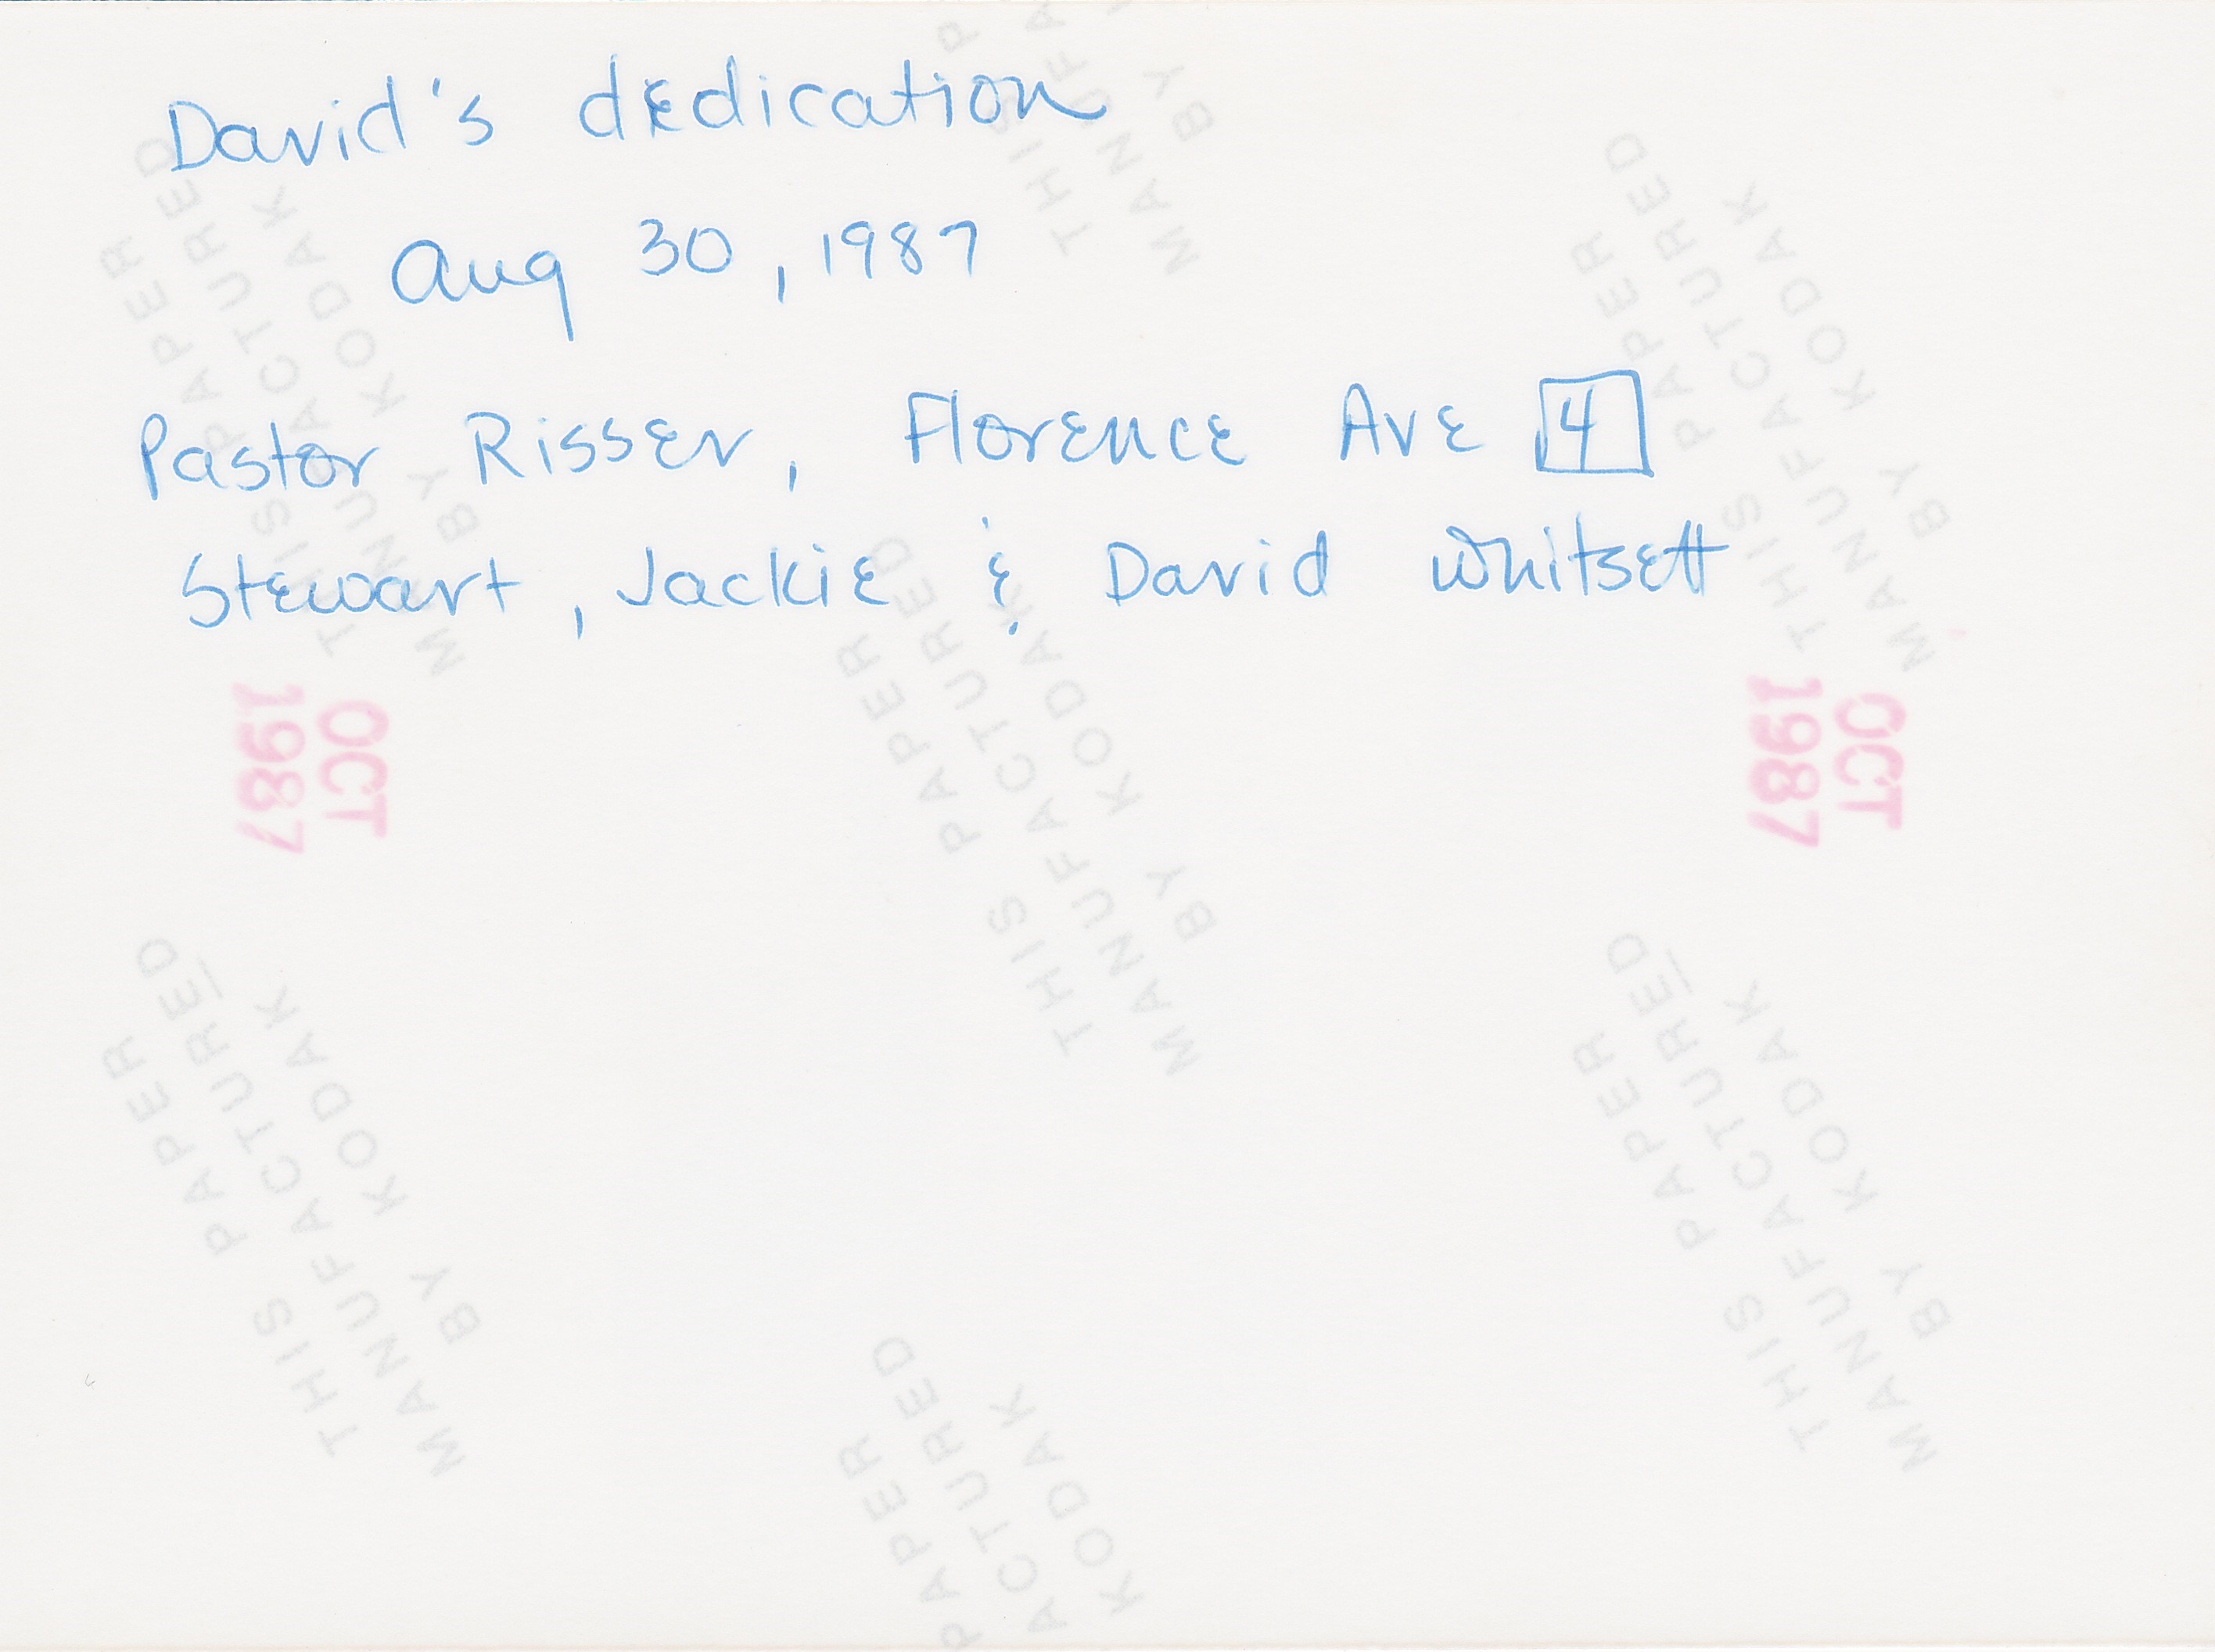 David's dedication
Aug 30, 1987
Pastor Risser, Florence Ave 4
Stewart, Jackie & David Whitsett
OCT
1987
OCT
1987
THIS PAPER
MANUFACTURED
BY KODAK
THIS PAPER
MANUFACTURED
BY KODAK
THIS PAPER
MANUFACTURED
BY KODAK
THIS PAPER
MANUFACTURED
BY KODAK
THIS PAPER
MANUFACTURED
BY KODAK